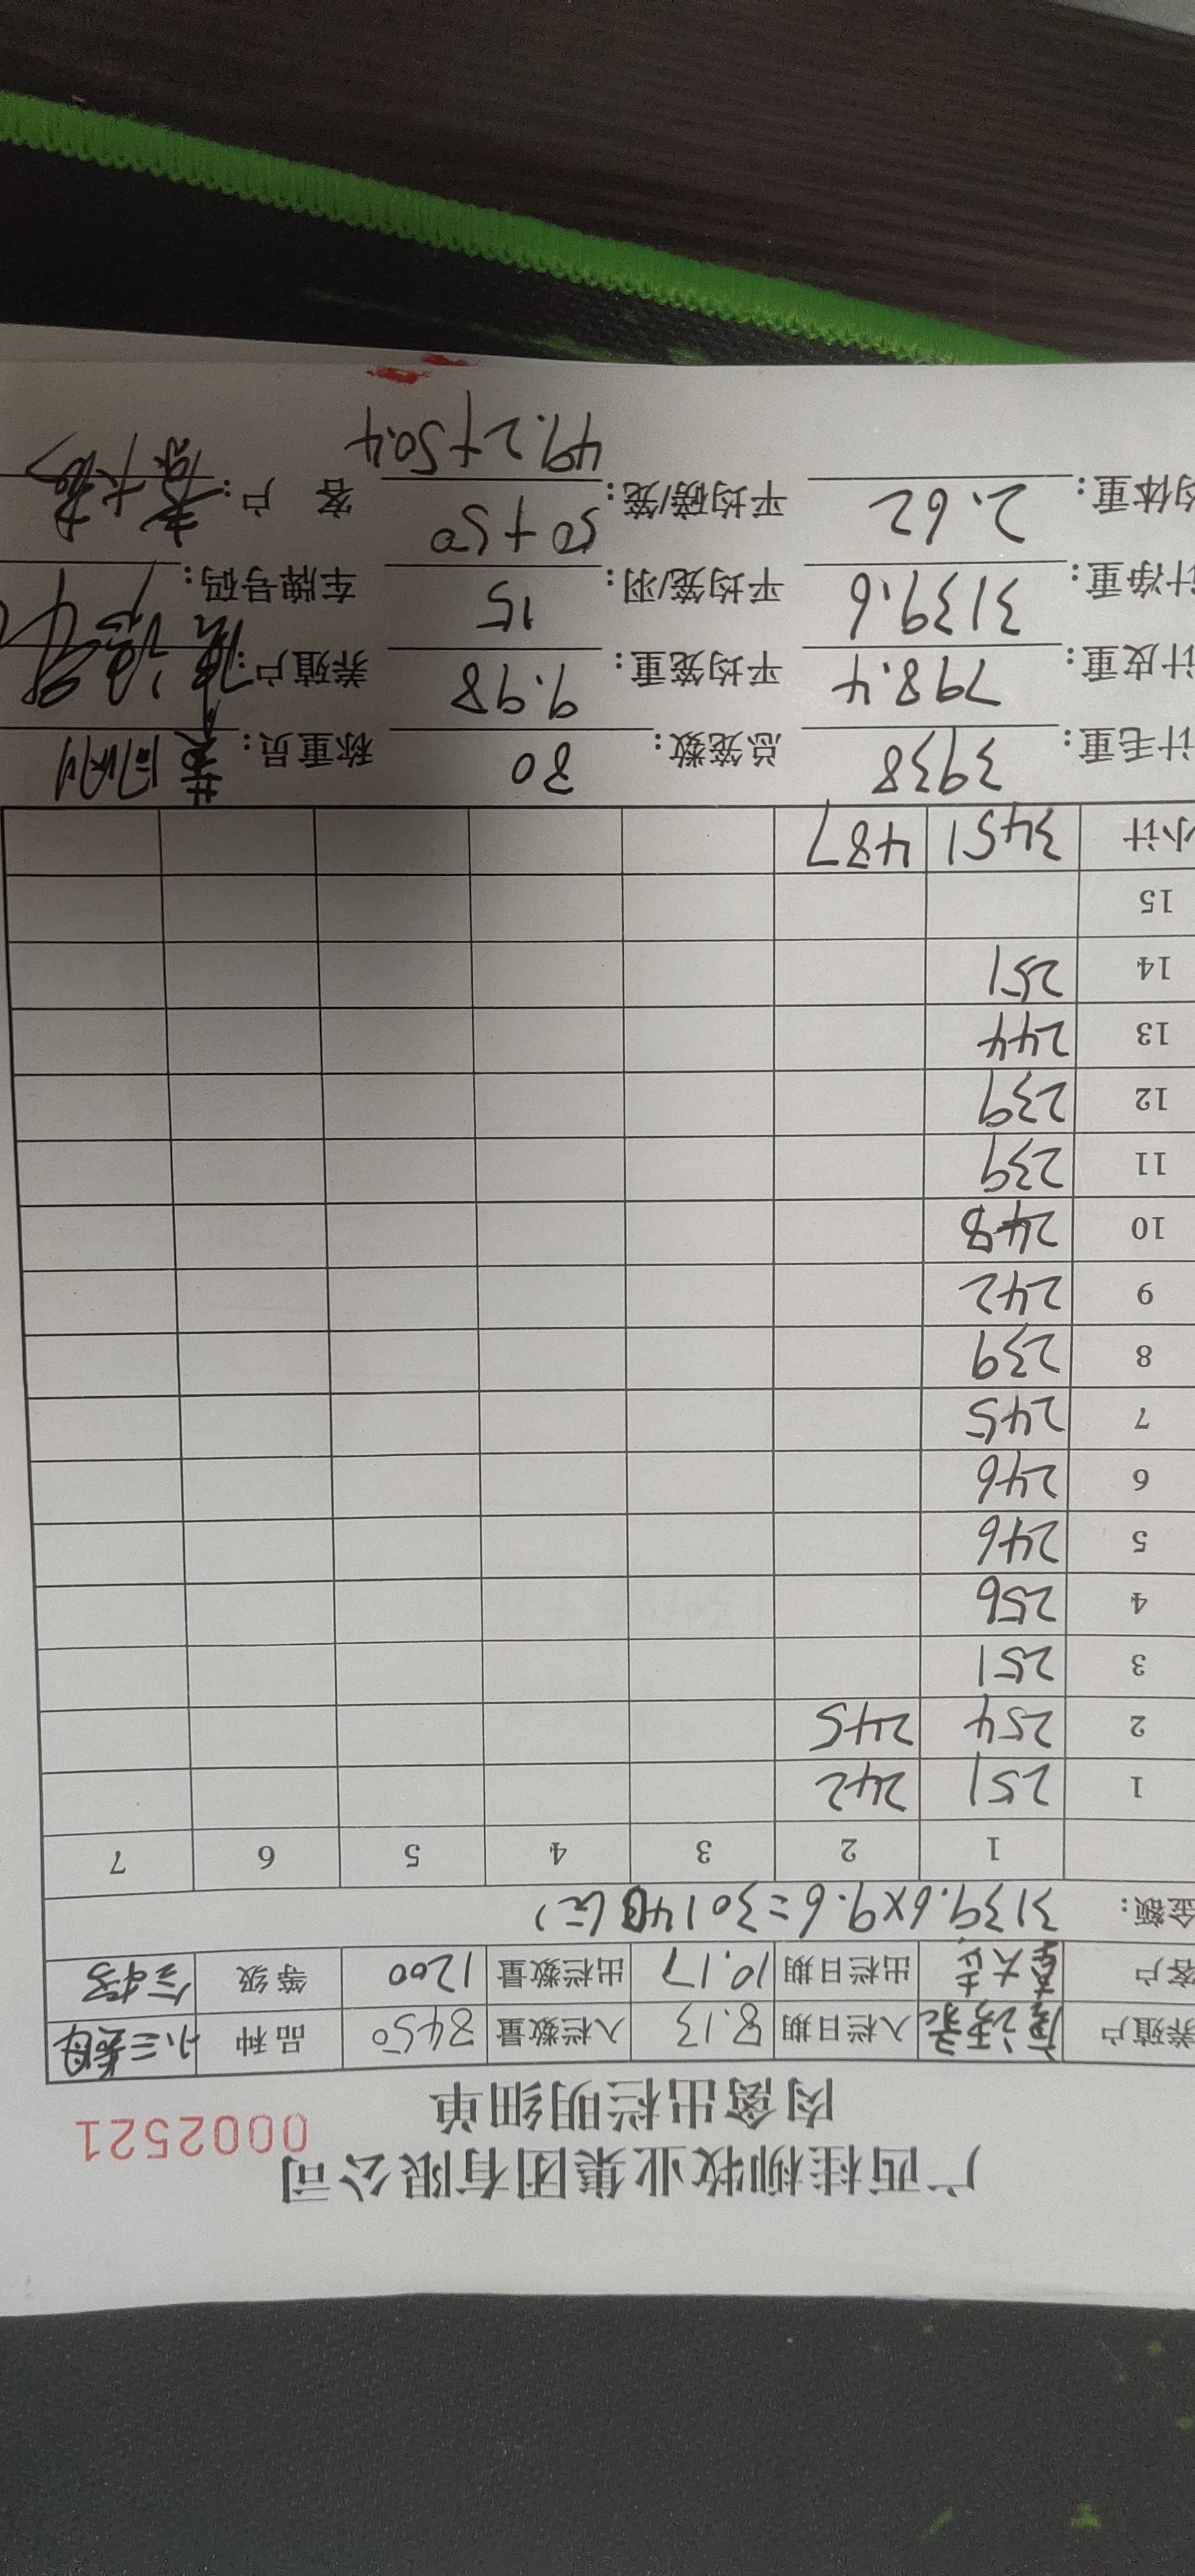 广西桂柳牧业集团有限公司
肉禽出栏明细单 0002521
养殖户 入栏日期 8.13 入栏数量 8450 品种 小三黄母
客户 出栏日期 10.17 出栏数量 1200 等级
金额: 3139.6×9.6=30140(元)
1 2 3 4 5 6 7
1 251 242
2 254 245
3 251
4 256
5 246
6 246
7 245
8 239
9 242
10 248
11 239
12 239
13 244
14 251
15
小计 3451 487
计毛重: 3938 总笼数: 80 称重员:
计皮重: 798.4 平均笼重: 9.98 养殖户:
计净重: 3139.6 平均笼/羽: 15 车牌号码:
均体重: 2.62 平均磅/笼: 50+50 客 户:
49.2+50.4